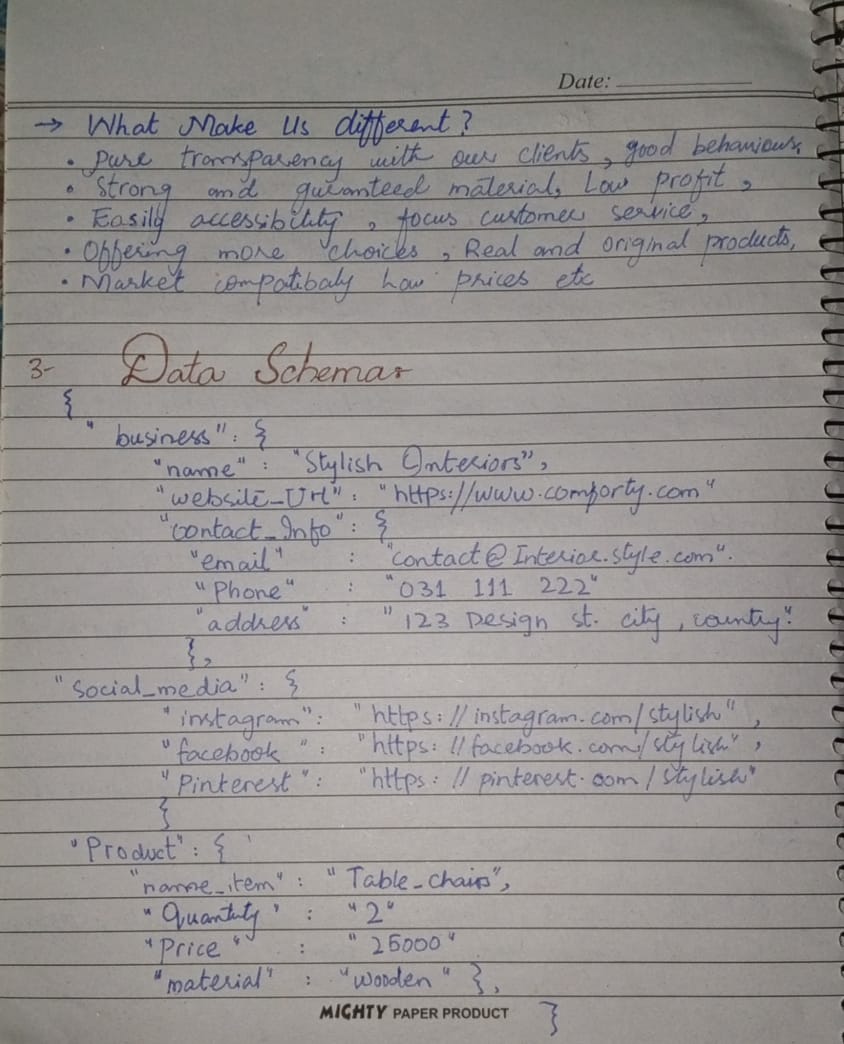 Date:
→ What Make Us different?
• Pure transparency with our clients, good behaviour,
• Strong and guranteed material, Low profit,
• Easily accessibility, focus customer service,
• Offering more choices, Real and original products,
• Market compatibaly how prices etc
3- Data Schema
{
"business": {
"name": "Stylish Interiors",
"website_Url": "https://www.comforty.com"
"contact_Info": {
"email" : "contact@Interior.style.com".
"Phone" : "031 111 222"
"address" : "123 Design st. city, country".
},
"Social_media": {
"instagram": "https://instagram.com/stylish",
"facebook": "https://facebook.com/stylish",
"Pinterest": "https://pinterest.com/stylish"
}
"Product": {
"name_item": "Table_chairs",
"Quantity" : "2"
"Price" : "25000"
"material" : "wooden" },
MIGHTY PAPER PRODUCT
}